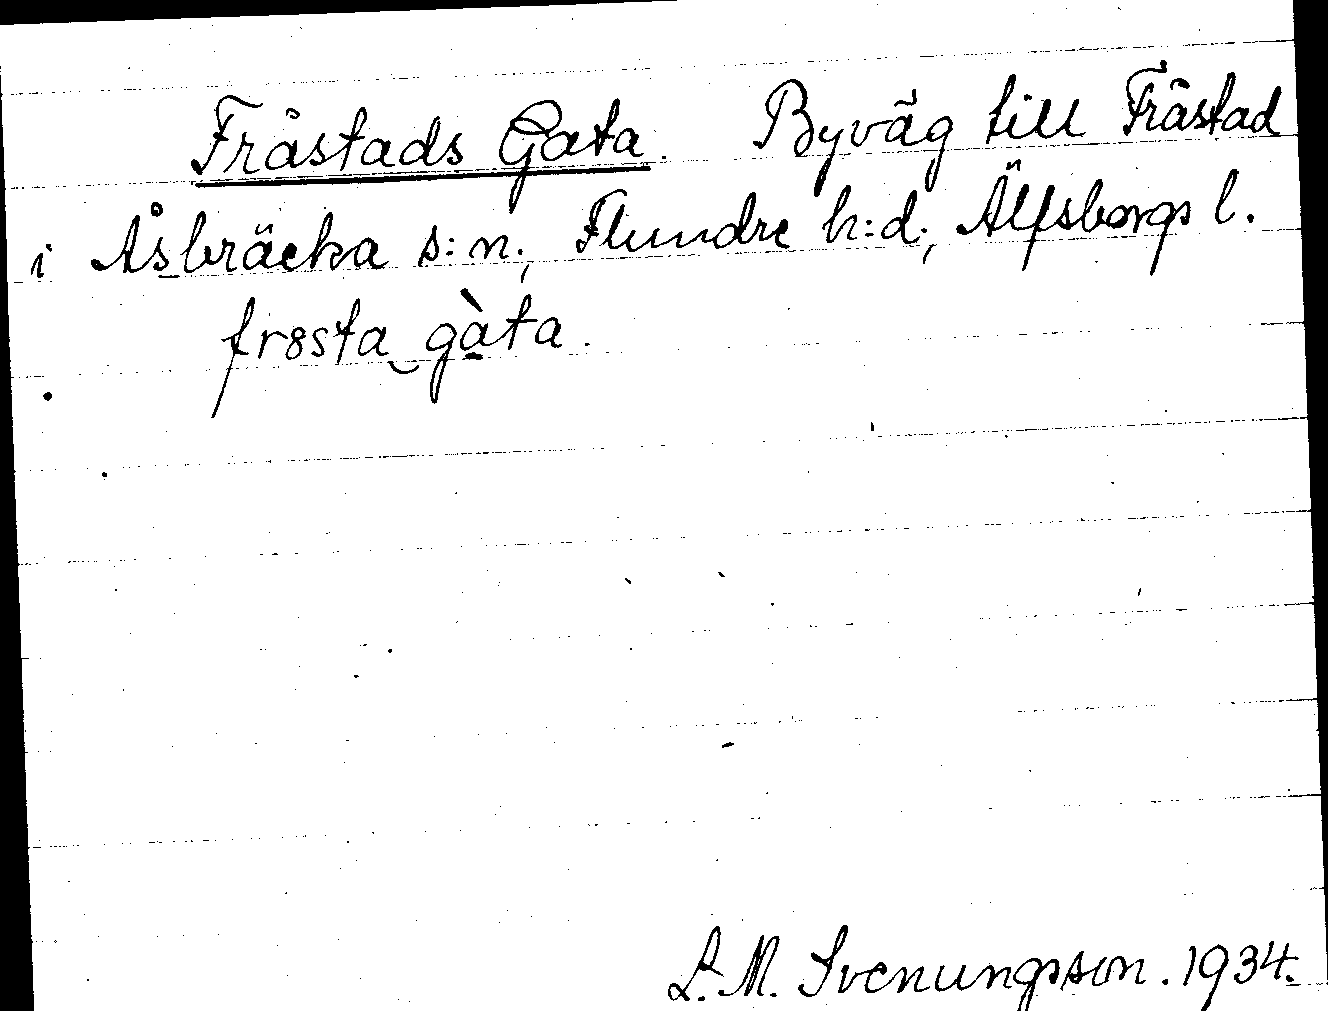 Fråstads Gata. Byväg till Fråstad
i Åsbräcka s:n., Flundre h:d., Älfsborgs l.
fr8sta‿gàta.
L. M. Svenungsson. 1934.